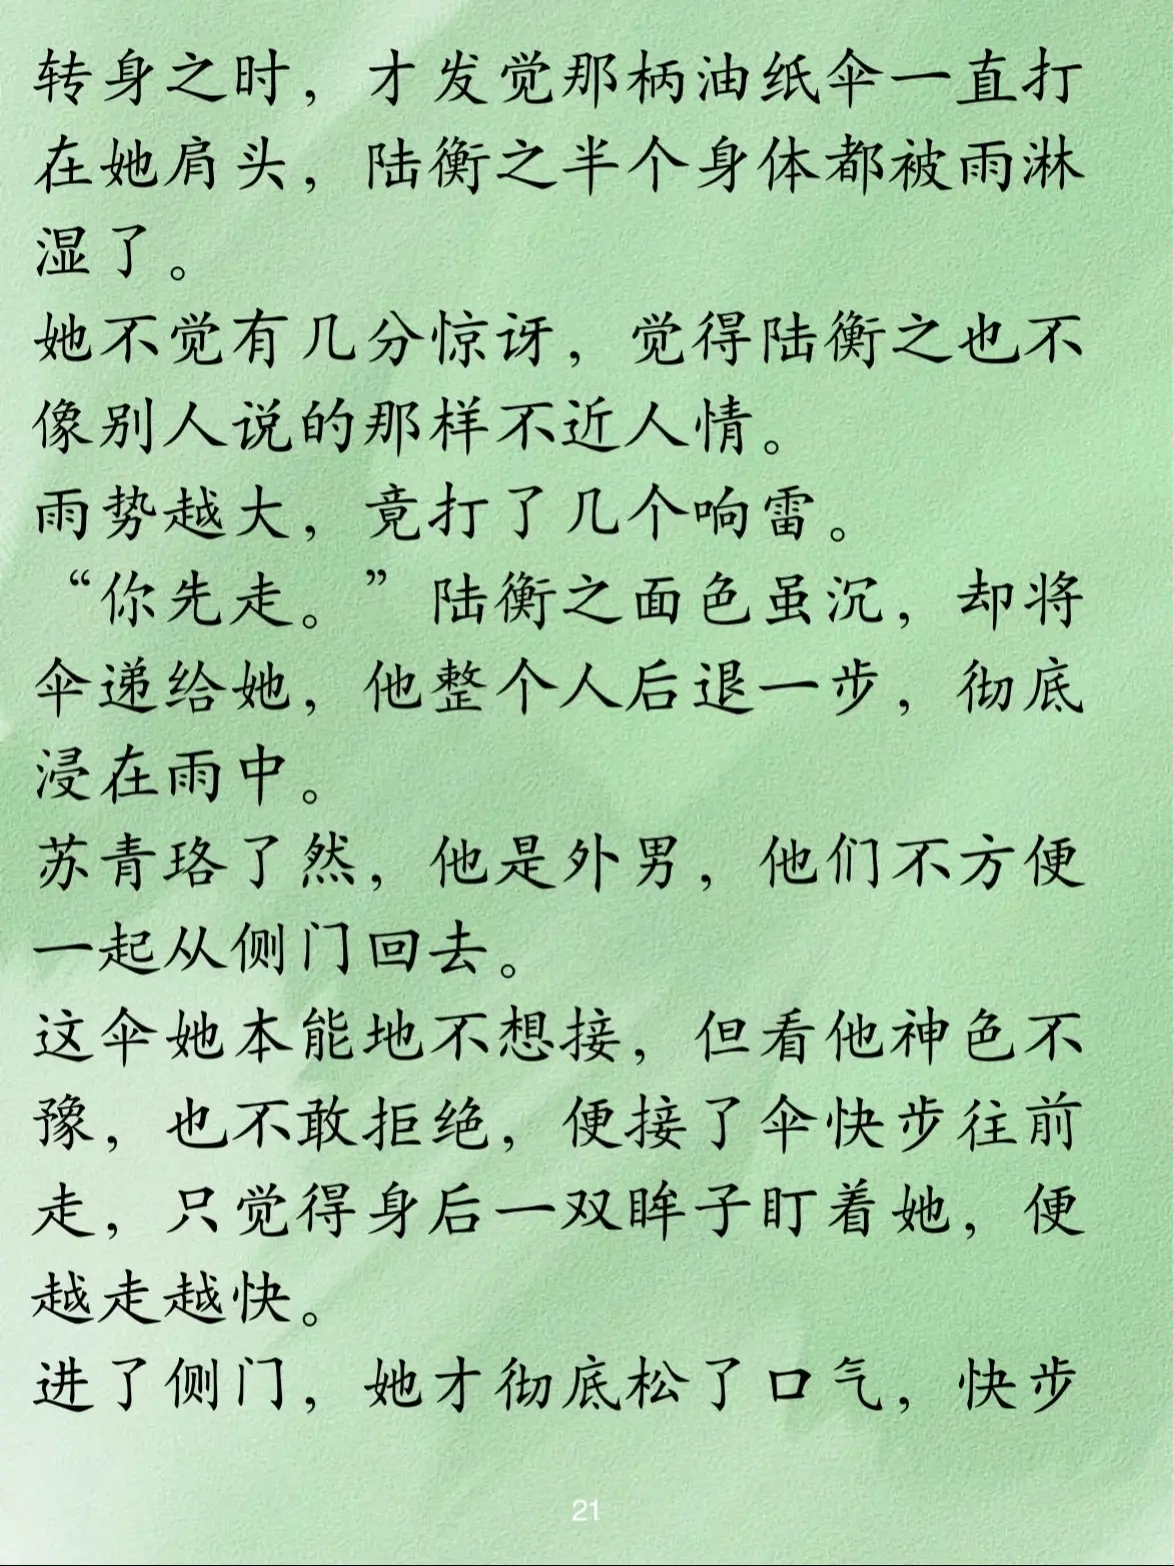 转身之时，才发觉那柄油纸伞一直打
在她肩头，陆衡之半个身体都被雨淋
湿了。
她不觉有几分惊讶，觉得陆衡之也不
像别人说的那样不近人情。
雨势越大，竟打了几个响雷。
“你先走。”陆衡之面色虽沉，却将
伞递给她，他整个人后退一步，彻底
浸在雨中。
苏青珞了然，他是外男，他们不方便
一起从侧门回去。
这伞她本能地不想接，但看他神色不
豫，也不敢拒绝，便接了伞快步往前
走，只觉得身后一双眸子盯着她，便
越走越快。
进了侧门，她才彻底松了口气，快步
21